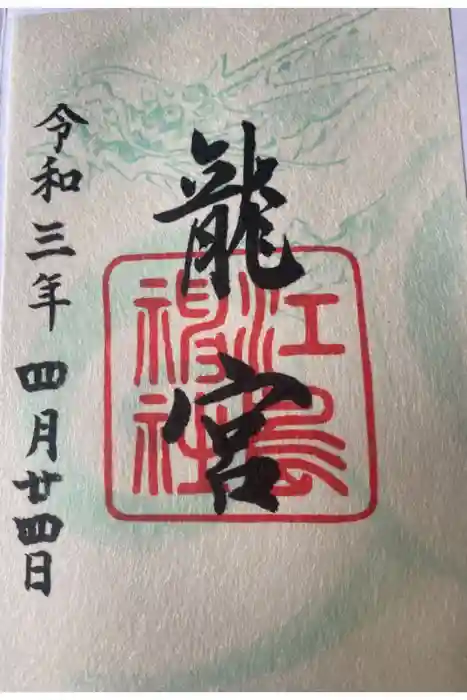 龍宮
江島神社
令和三年四月廿四日